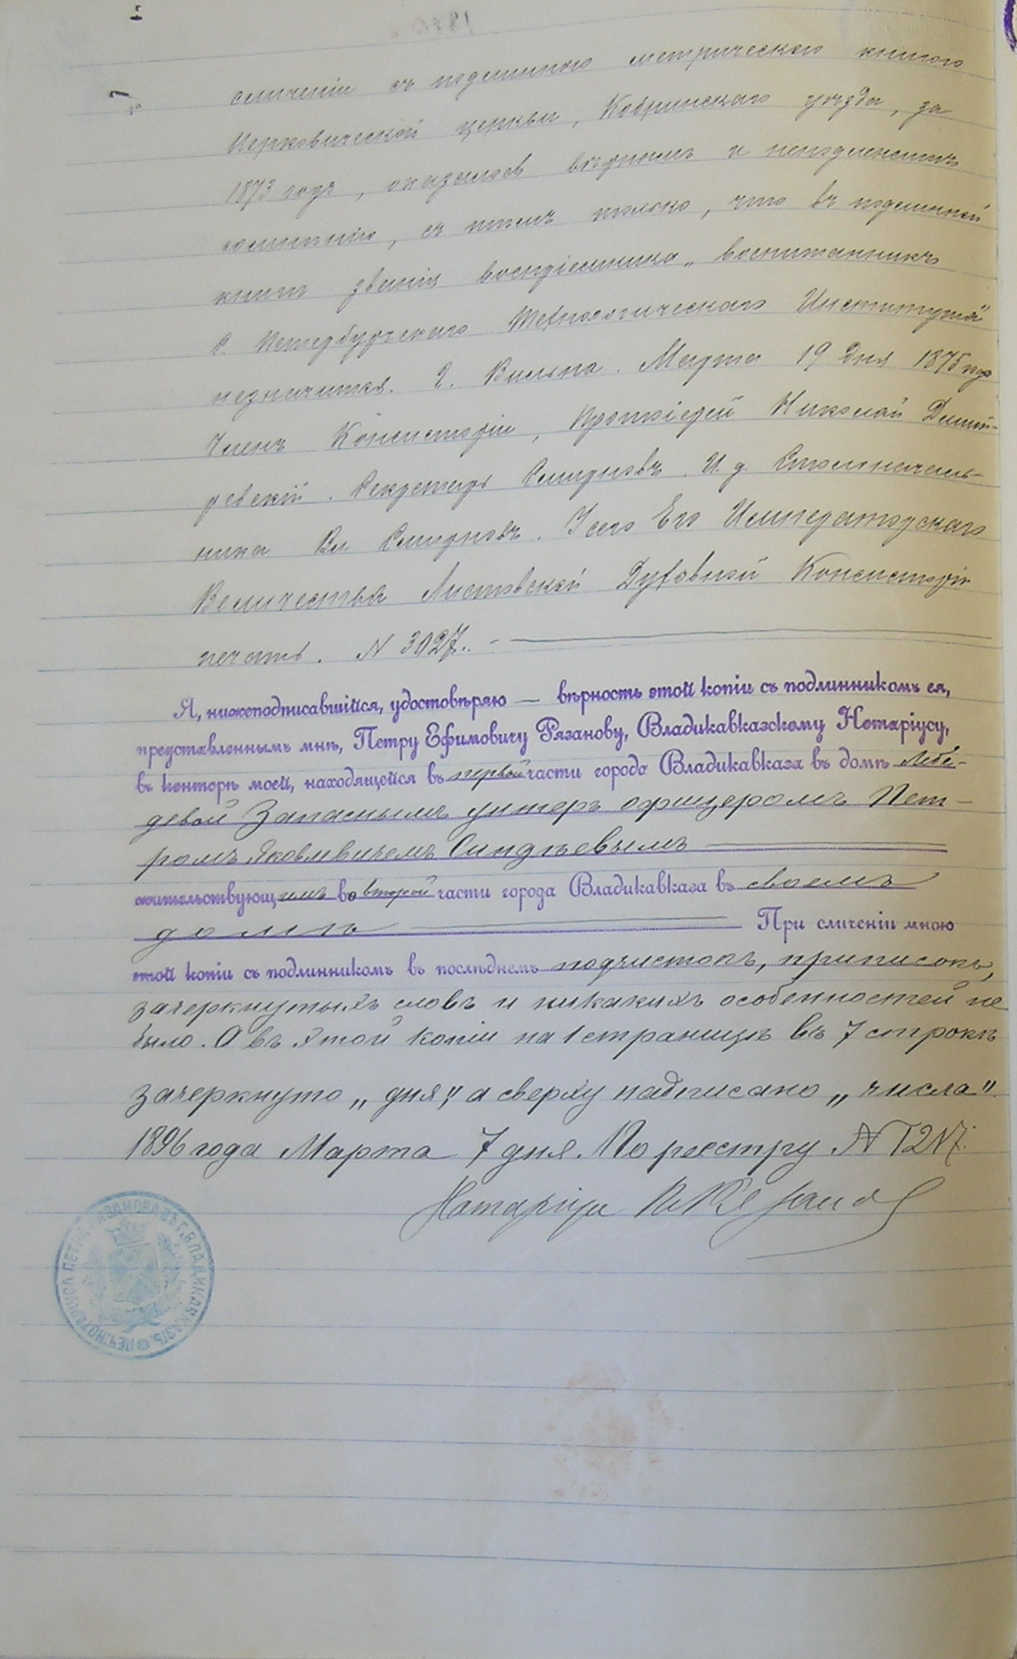 сличеніи съ подлинною метрическою книгою
церкви, Кобринскаго уѣзда, за
1873 годъ, оказалось вѣрнымъ и неподлежитъ
сомнѣнію, съ тѣмъ только, что въ подлинной
книгѣ званія воспріемника „воспитанникъ
С. Петербургскаго Технологическаго Института"
незначится. Г. Вильна. Марта 19 дня 1875 года
Членъ Консисторіи, Протоіерей Николай
Секретарь Смирновъ. И. д. Столоначаль-
ника Вл Смирновъ. У сего Его Императорскаго
Величества Литовской Духовной Консисторіи
печать. N 3027. —
Я, нижеподписавшійся, удостовѣряю — вѣрность этой копіи съ подлинникомъ ея,
представленнымъ мнѣ, Петру Ефимовичу Рязанову, Владикавказскому Нотаріусу,
въ конторѣ моей, находящейся въ первой части города Владикавказа въ домѣ Лебе-
девой Запаснымъ унтеръ офицеромъ Пет-
ромъ Яковлевичемъ
жительствующимъ во второй части города Владикавказа въ своемъ
домѣ — При сличеніи мною
этой копіи съ подлинникомъ въ послѣднемъ подчистокъ, приписокъ,
зачеркнутыхъ словъ и никакихъ особенностей не
было. А въ этой копіи на 1 страницѣ въ 7 строкѣ
зачеркнуто „дня", а сверху надписано „числа"
1896 года Марта 7 дня. По реестру N 1217.
Нотаріусъ П. Рязановъ